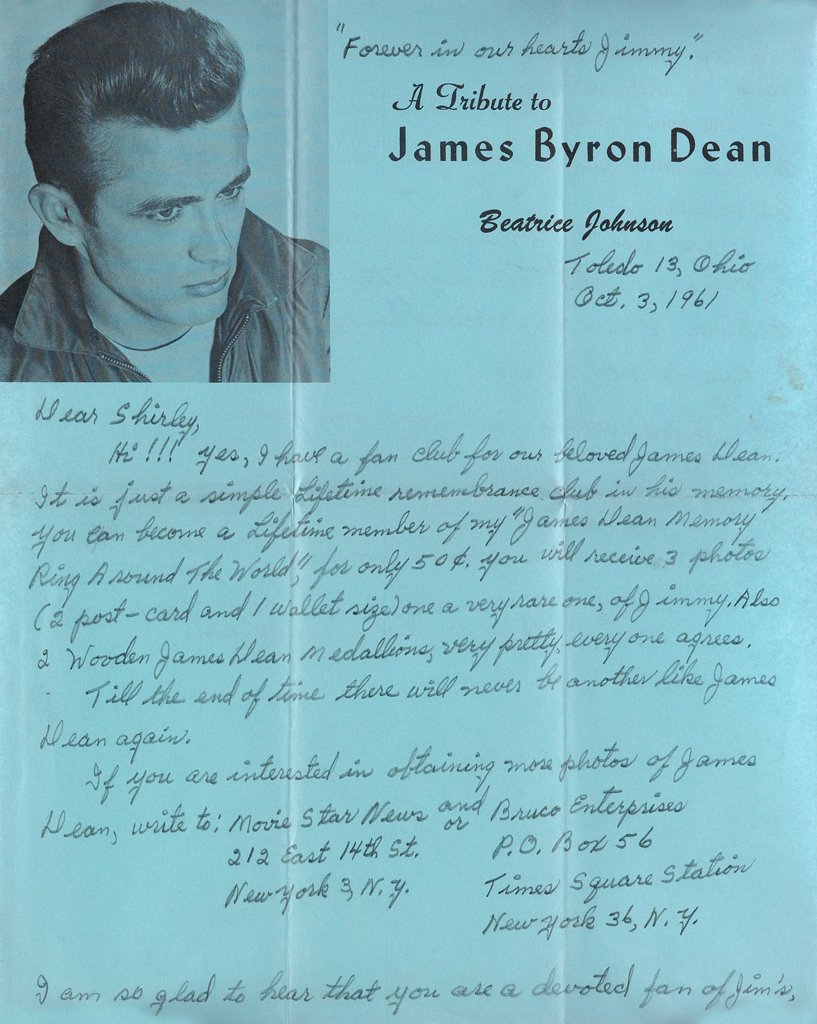 "Forever in our hearts Jimmy."
A Tribute to
James Byron Dean
Beatrice Johnson
Toledo 13, Ohio
Oct. 3, 1961
Dear Shirley,
Hi!!! Yes, I have a fan club for our beloved James Dean.
It is just a simple Lifetime remembrance club in his memory.
You can become a Lifetime member of my "James Dean Memory
Ring Around The World", for only 50¢. You will receive 3 photos
(2 post-card and 1 wallet size) one a very rare one, of Jimmy. Also
2 Wooden James Dean Medallions, very pretty, every one agrees.
Till the end of time there will never be another like James
Dean again.
If you are interested in obtaining more photos of James
Dean, write to: Movie Star News and or Bruco Enterprises
212 East 14th St. P.O. Box 56
New York 3, N.Y. Times Square Station
New York 36, N.Y.
I am so glad to hear that you are a devoted fan of Jim's,